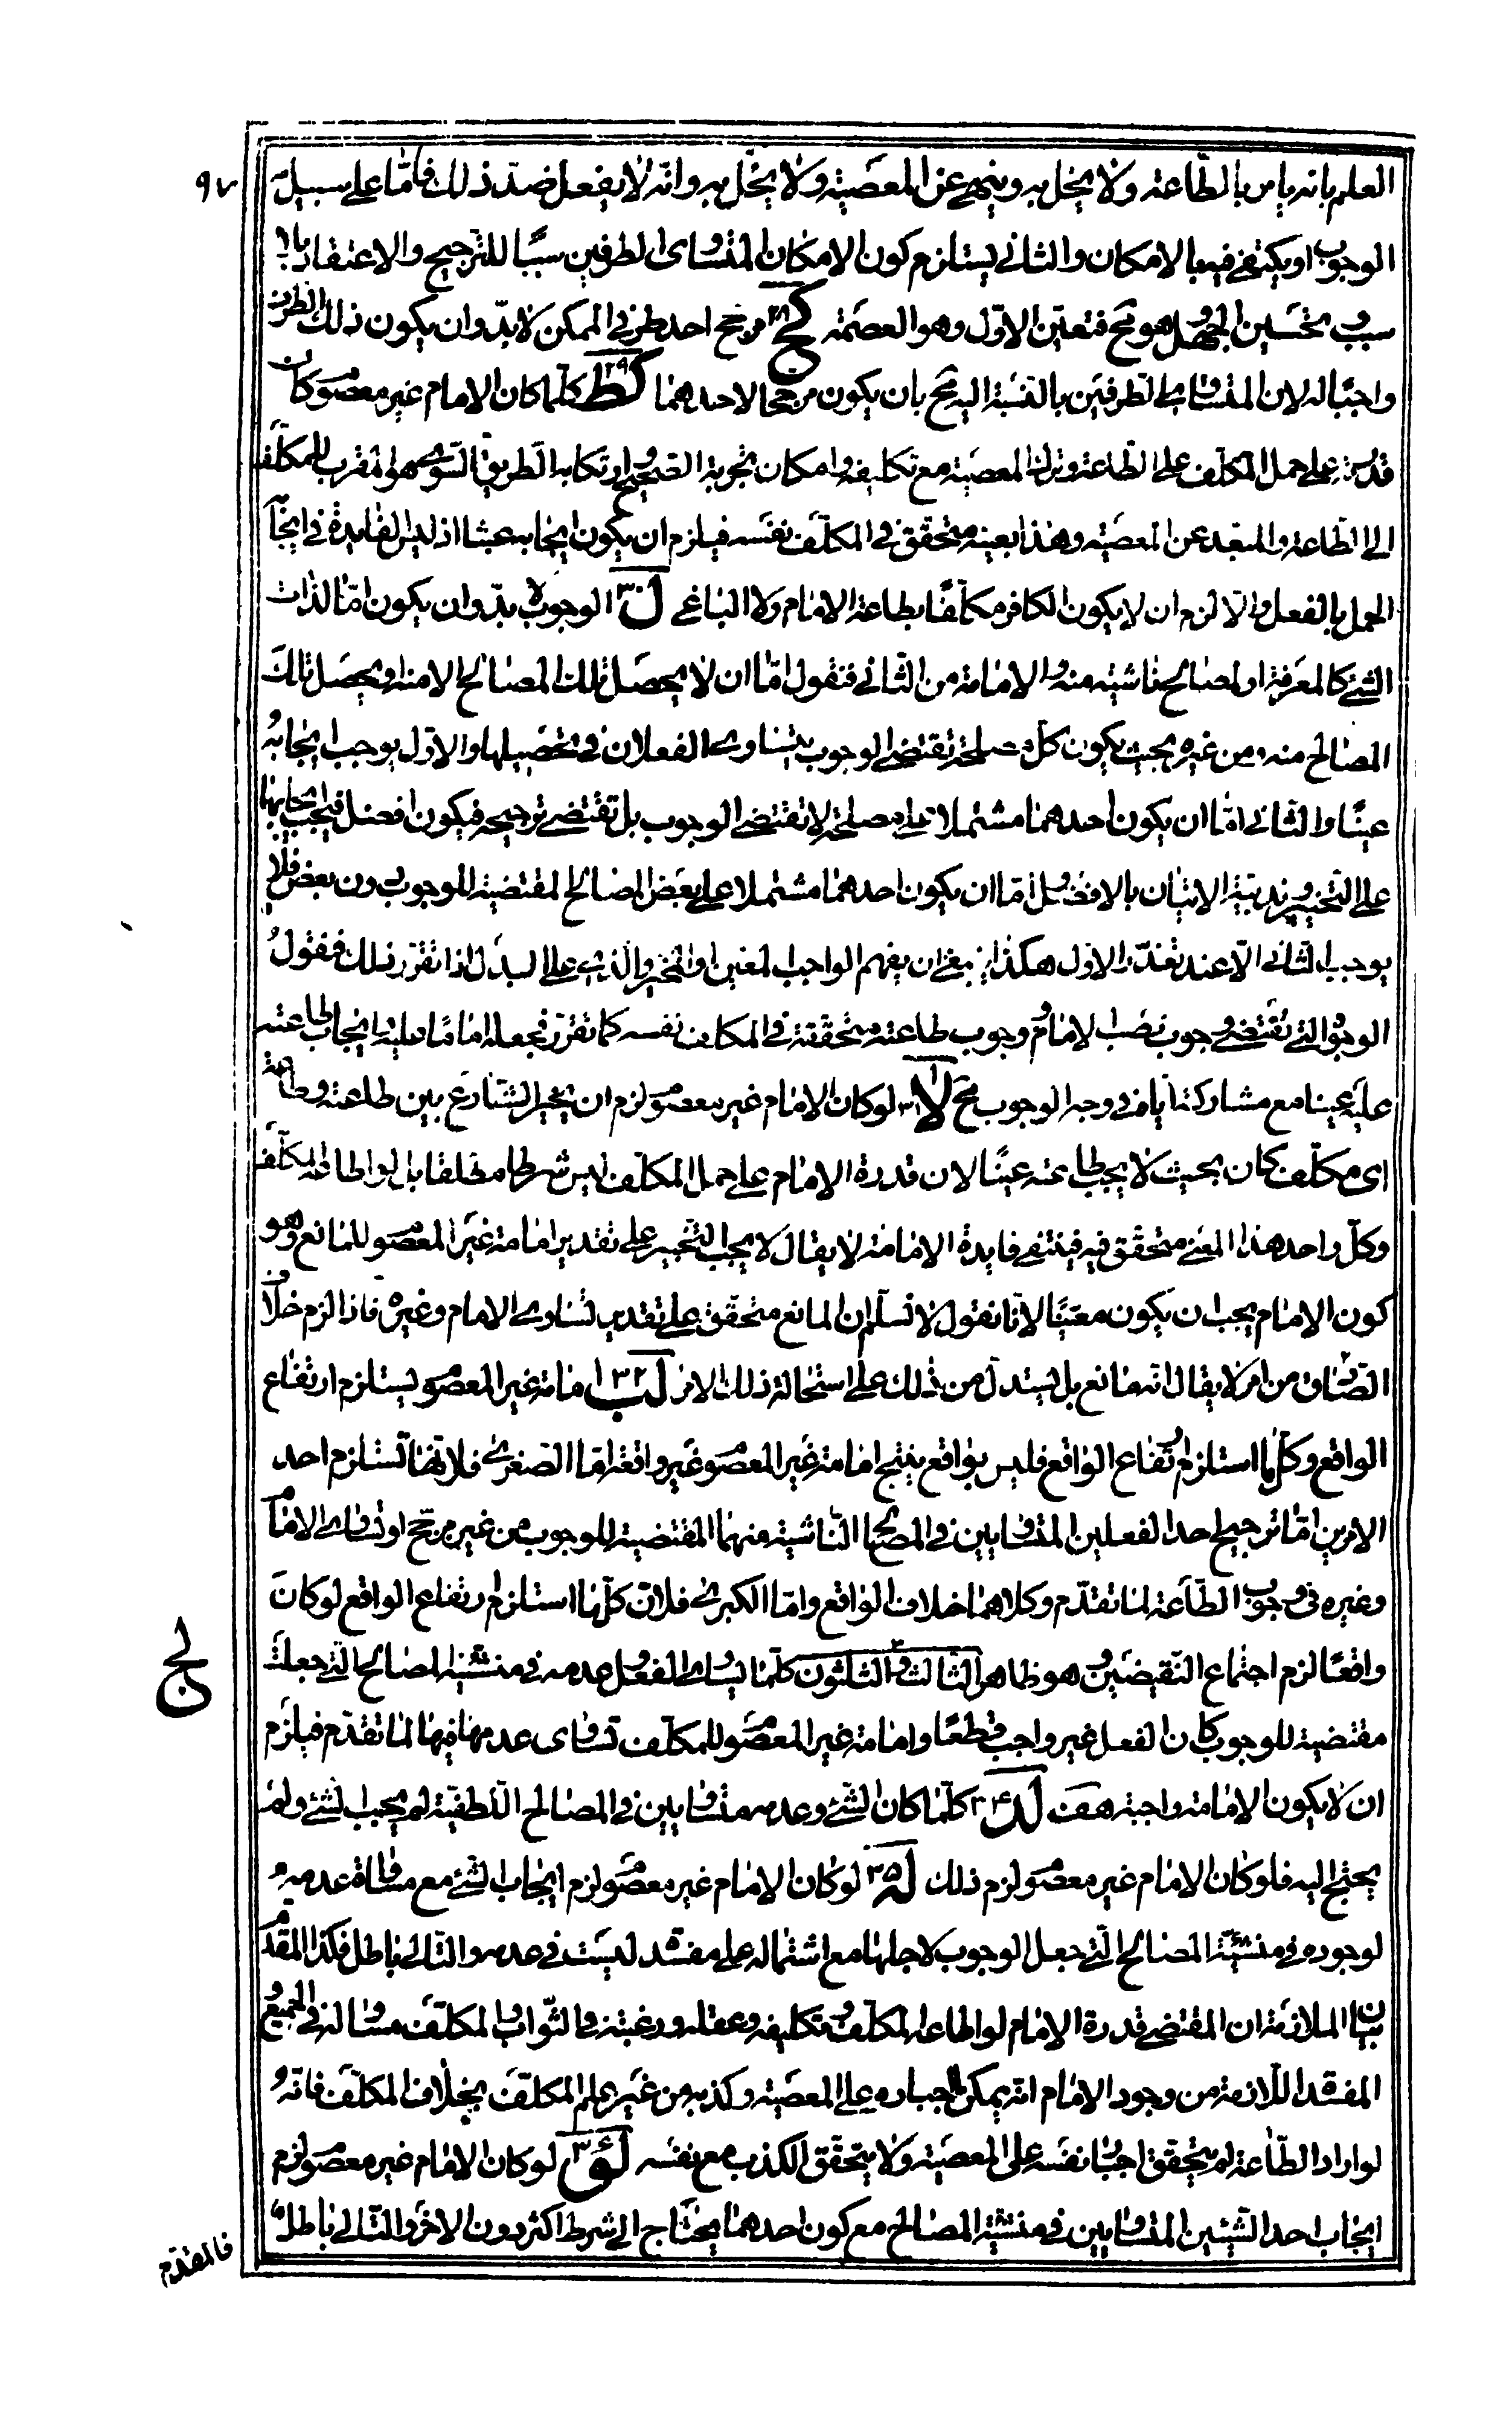 ٩٧
العلم بانه يامر بالطّاعة ولا يخل به وينهى عن المعصية ولا يخل به وانّه لا يفعل ضدّ ذلك فامّا على سبيل
الوجوب او يكتفى فيه بالامكان والثانى يستلزم كون الامكان المتساوى الطرفين سببًا للترجيح والاعتقاد
سبب تحسين الجهل وهو مح فتعيّن الاوّل وهو العصمة كح ٢٨ مرجح احد طرفى الممكن لا بدّ وان يكون ذلك الطرف
واجبًا له لان المتساوى الطرفين بالنسبة اليه مح بان يكون مرجحا لاحدهما كط ٢٩ كلّما كان الامام غير معصوم كان
قدرته على حمل المكلّف على الطّاعة وترك المعصية مع تكليفه وامكان تجربة الصحيح وارتكابه الطريق السّوى هو المقرب للمكلّف
الى الطّاعة والمبعّد عن المعصية وهذا بعينه متحقق فى المكلّف نفسه فيلزم ان يكون ايجابه عبثا اذ ليس الفايدة فى ايجاب
الحمل بالفعل والّا لزم ان لا يكون الكافر مكلّفًا بطاعة الامام ولا الباغى ل ٣٠ الوجوب لا بدّ وان يكون امّا لذات
الشئ كالمعرفة او لمصالح ناشية منه والامامة من الثّانى فنقول امّا ان لا يحصل تلك المصالح الا منه او يحصل تلك
المصالح منه ومن غيره بحيث يكون كلّ مصلحة تقتضى الوجوب يتساوى الفعلان فى تحصيلها والاوّل يوجب ايجابه
عينًا والثانى امّا ان يكون احدهما مشتملا على مصلحة لا تقتضى الوجوب بل تقتضى ترجيحه فيكون افضل فيجب ايجابها
على التخيير وندبيّة الاتيان بالافضل وامّا ان يكون احدهما مشتملا على بعض المصالح المقتضية للوجوب دون بعض فلا
يوجب الثانى الّا عند تعذّر الاول هكذا ينبغى ان يفهم الواجب المعين والمخير والذى على البدل اذا تقرر ذلك فنقول
الوجوه التى تقتضى وجوب نصب الامام ووجوب طاعته متحققة فى المكلف نفسه كما تقرر فجعله امامًا عليه وايجاب طاعته
عليه عينا مع مشاركته اياه فى وجه الوجوب مح لا ٣١ لو كان الامام غير معصوم لزم ان يخير الشارع بين طاعته وطاعة
اى مكلّف كان بحيث لا يجب طاعته عينًا لان قدرة الامام على حمل المكلّف ليس شرطا مطلقا بل لو اطاعه المكلّف
وكلّ واحد هذا المعنى متحقّق فيه فينتفى فايدة الامامة لا يقال لا يجب التخيير على تقدير امامة غير المعصوم للمانع وهو
كون الامام يجب ان يكون معيّنًا لانّا نقول لا نسلّم ان المانع متحقق على تقدير تساوى الامام وغيره فاذا لزم خلاف
الصّادق من امر لا يقال انّه مانع بل يستدلّ من ذلك على استحالة ذلك الامر لب ٣٢ امامة غير المعصوم يستلزم ارتفاع
الواقع وكلّ ما استلزم ارتفاع الواقع فليس بواقع ينتج امامة غير المعصوم غير واقعة امّا الصغرى فلانّها تستلزم احد
الامرين امّا ترجيح احد الفعلين المتساويين فى المصالح النّاشية منهما المقتضية للوجوب من غير مرجّح او تساوى الامام
وغيره فى وجوب الطّاعة لما تقدّم وكلاهما خلاف الواقع وامّا الكبرى فلانّ كلّما استلزم ارتفاع الواقع لو كان
واقعًا لزم اجتماع النّقيضين وهو ظاهر الثّالث والثلثون كلّما يساوى الفعل عدمه فى منشئية المصالح التى جعلت
لج
مقتضية للوجوب كان الفعل غير واجب قطعًا وامامة غير المعصوم للمكلّف تساوى عدمها فيها لما تقدّم فيلزم
ان لا يكون الامامة واجبة هف لد ٣٤ كلّما كان الشّئ وعدمه متساويين فى المصالح اللّطفيّة لم يجب الشئ ولم
يحتج اليه فلو كان الامام غير معصوم لزم ذلك له ٣٥ لو كان الامام غير معصوم لزم ايجاب الشئ مع مساواة عدمه
لوجوده فى منشئيّة المصالح التى جعل الوجوب لاجلها مع اشتماله على مفسدة ليست فى عدمه والتالى باطل فكذا المقدّم
بيان الملازمة ان المقتضى قدرة الامام لو اطاعه المكلّف وتكليفه وعقله ورغبته فى الثّواب والمكلّف مساو له فى الجميع و
المفسدة اللّازمة من وجود الامام انّه يمكن اجباره على المعصية وكذبه من غير علم المكلّف بخلاف المكلّف فانّه
لو اراد الطّاعة لم يتحقق اجبار نفسه على المعصية ولا يتحقّق الكذب مع نفسه لو ٣٦ لو كان الامام غير معصوم لزم
ايجاب احد الشيئين المتساويين فى منشئيّة المصالح مع كون احدهما يحتاج الى شرط اكثر دون الاخر والتّالى باطل
فالمقدّم